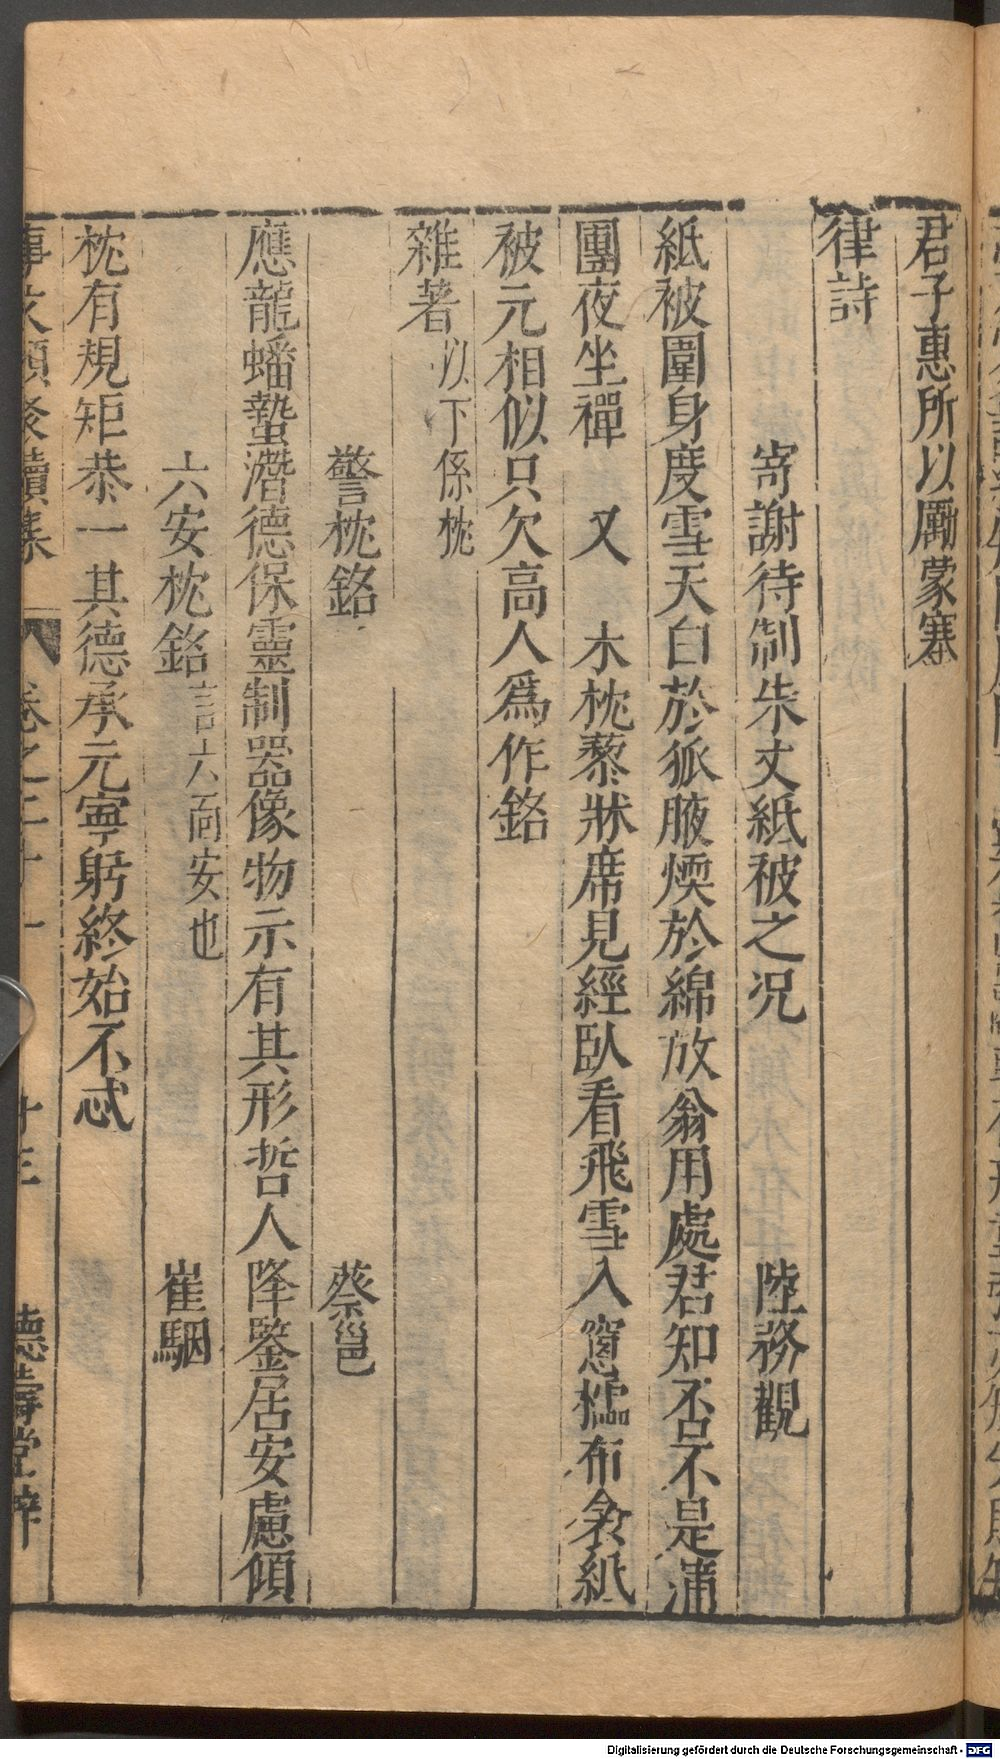 君子惠所以勵蒙塞
律詩
寄謝待制朱丈紙被之况 陸務觀
紙被圍身度雪天白於狐腋煖於綿放翁用處君知否不是蒲
團夜坐禪 又 木枕藜牀席見經臥看飛雪入窻櫺布衾紙
被元相似只欠高人爲作銘
雜著以下係枕
警枕銘 蔡邕
應龍蟠蟄潛德保靈制器像物示有其形哲人降鑒居安慮傾
六安枕銘言六面安也 崔駰
枕有規矩恭一其德承元寧躬終始不忒
事文類聚續集 卷之二十一 十三 德壽堂梓
Digitalisierung gefördert durch die Deutsche Forschungsgemeinschaft - DFG